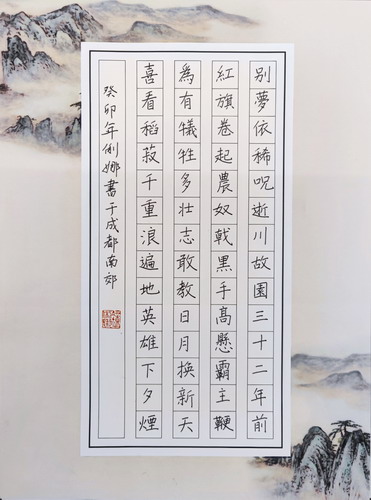 別夢依稀呪逝川故園三十二年前
紅旗卷起農奴戟黑手高懸霸主鞭
為有犧牲多壯志敢教日月換新天
喜看稻菽千重浪遍地英雄下夕煙
癸卯年俐娜書于成都南郊